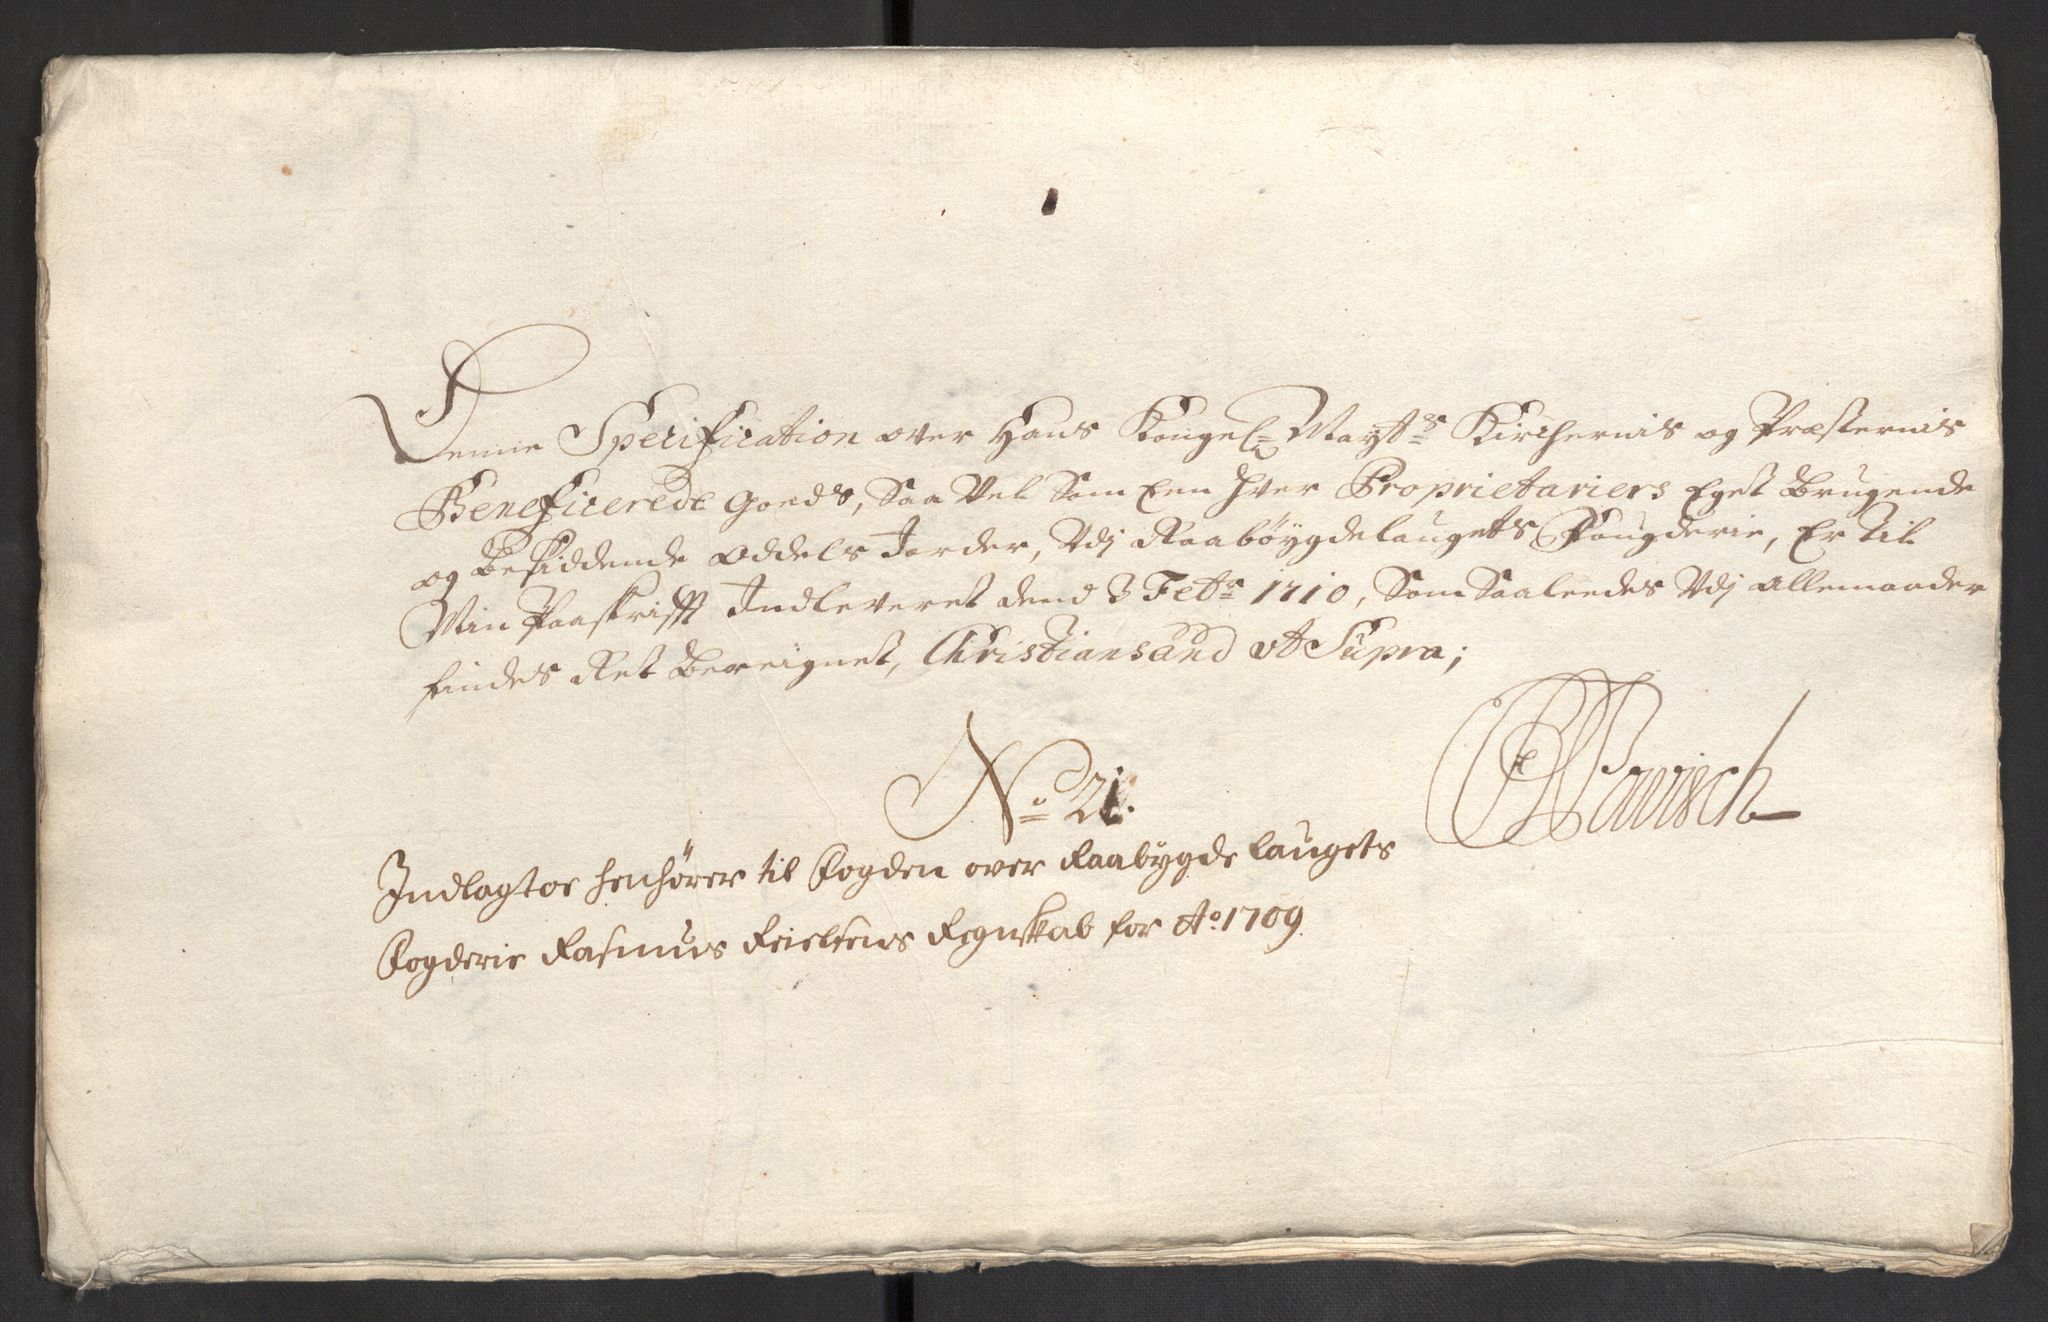 Denne Specification over Hans Kongel: Mayts Kirchernis og Præsternis
Beneficerede Goeds, Saa Vel Som Een hver Proprietariers Eget Brugende
og Besiddende Oddels Jorder, Udj Raabøygdelaugets Fougderie, Er til
Min Paaskrifft Indleveret dend 3 Febr: 1710, Som Saaleedes Udj allemaader
findes Ret Bereignet, Christiansand ut Supra;
No 21.
Indlagtoe henhører til Fogden over Raabygde laugets
Fogderie Rasmus Regnskab for Ao: 1709